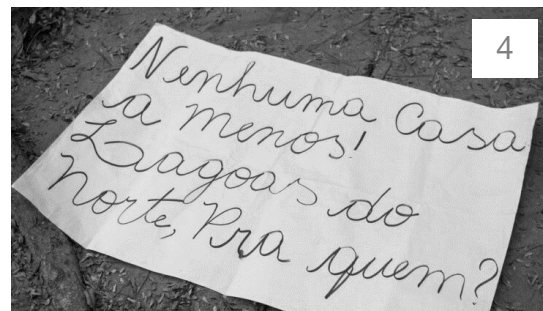 4
Nenhuma Casa
a menos!
Lagoas do
norte, Pra quem?